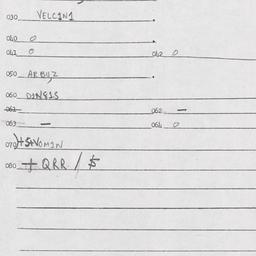 030 VELC1N1
040 0
041 0 042 0
050 ARBUZ
060 D1N81S
061 062 —
063 — 064 0
070
080 + QRR / $